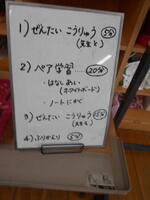 1) ぜんたい こうりゅう 5分
(先生と)
2) ペア学習 ‥‥ 20分
・はなしあい
(ホワイトボード)
・ノートにかく
3) ぜんたい こうりゅう 15分
4) ふりかえり 5分